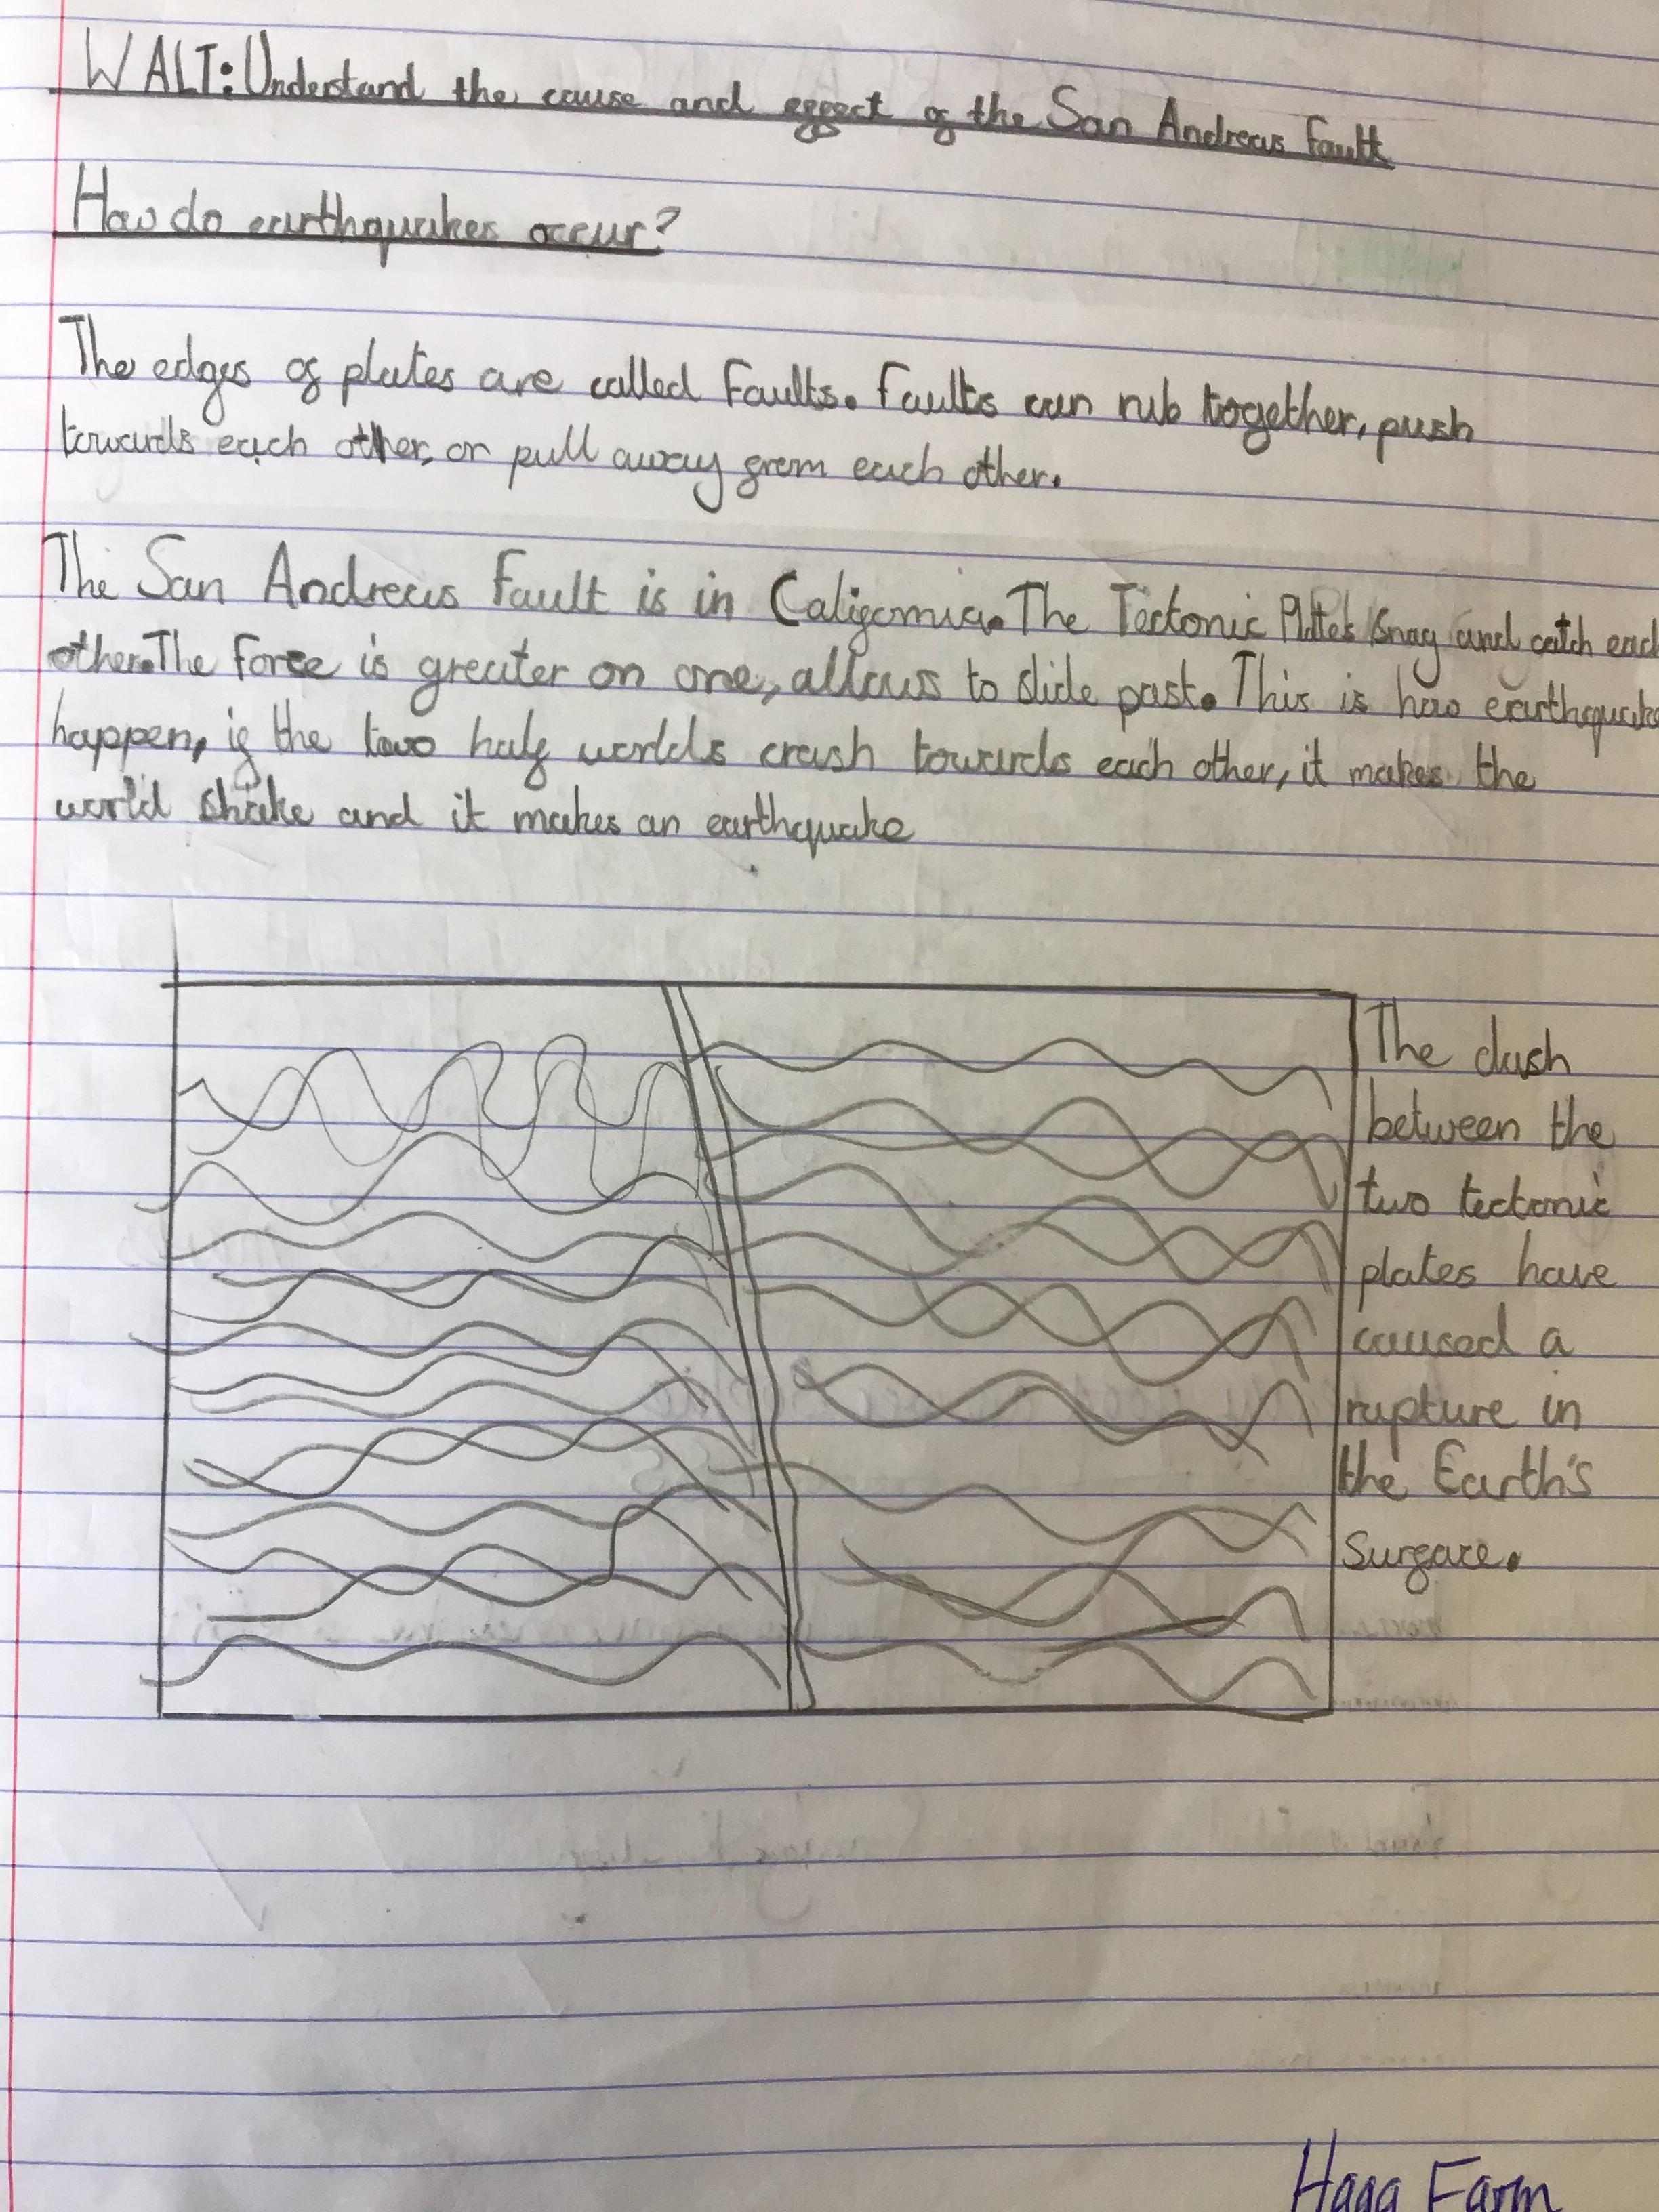 WALT: Understand the cause and effect of the San Andreas Fault
How do earthquakes occur?
The edges of plates are called Faults. Faults can rub together, push
towards each other, or pull away from each other.
The San Andreas Fault is in California. The Tectonic Plates snag and catch each
other. The Force is greater on one, allows to slide past. This is how earthquake
happen, if the two half worlds crash towards each other, it makes the
world shake and it makes an earthquake
The clash
between the
two tectonic
plates have
caused a
rupture in
the Earth's
surface.
Hagg Farm